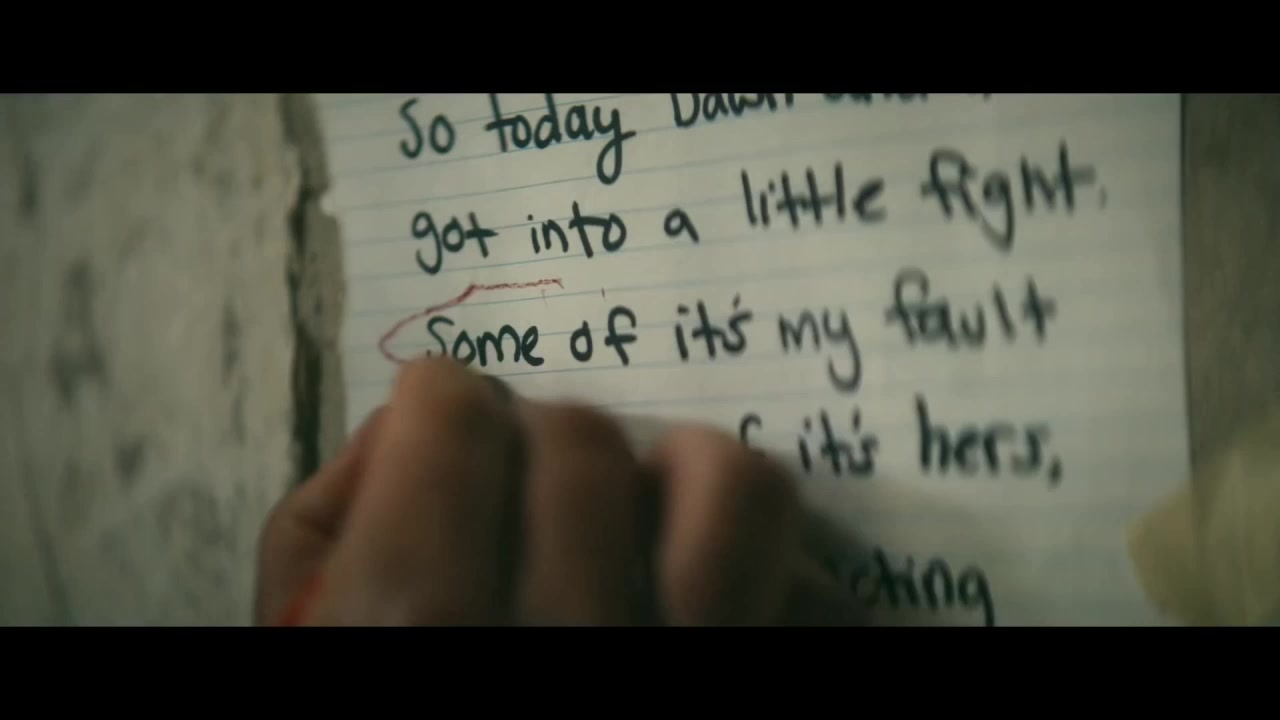 So today Dawn
got into a little fight.
Some of it's my fault
it's hers,